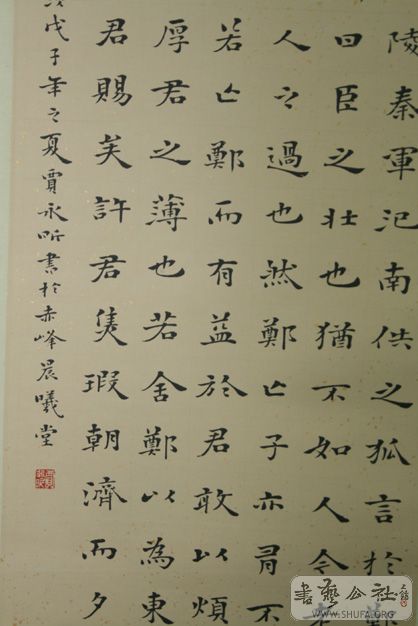 陵秦軍汜南佚之狐言於
曰臣之壯也猶不如人今
人之過也然鄭亡子亦有不
若亡鄭而有益於君敢以煩
厚君之薄也若舍鄭以為東
君賜矣許君焦瑕朝濟而夕
戊子年之夏賈永昕書於赤峰晨曦堂
書藝公社
WWW.SHUFA.ORG